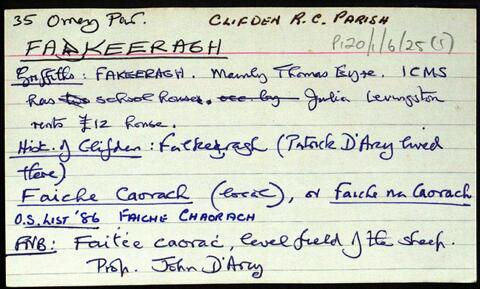 35 Omey Par. CLIFDEN R.C. PARISH
FAKEERAGH P120/1/6/25(5)
Griffiths: FAKEERAGH. Mainly Thomas Eyre. ICMS
has two school house, occ. by Julia Levingston
rents £12 house.
Hist. of Clifden: Falkeeragh (Patrick D'Arcy lived
there)
Faiche Caorach (local), or Faiche na Caorach
O.S. LIST '86 FAICHE CHAORACH
FNB: Faitċe caorać, level field of the sheep.
Prop. John D'Arcy